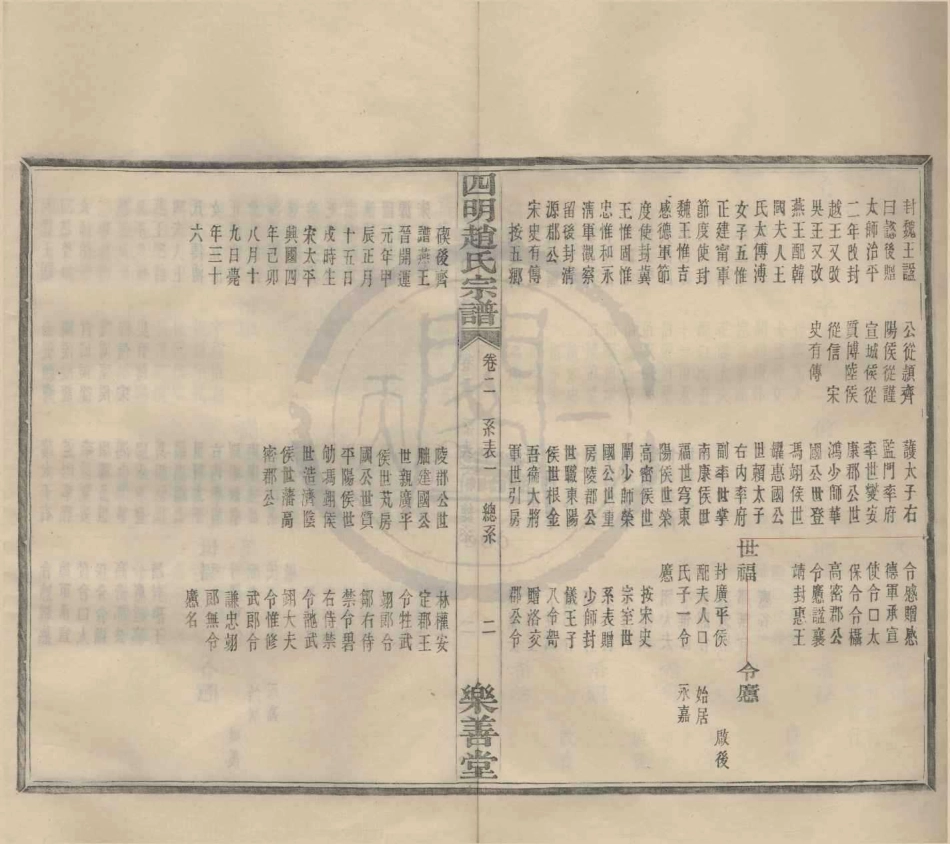 封魏王諡
曰懿後贈
太師治平
二年改封
越王又改
吳王又改
燕王配韓
國夫人王
氏太傅溥
女子五惟
正建甯軍
節度使封
魏王惟吉
感德軍節
度使封冀
王惟固惟
忠惟和永
清軍觀察
留後封清
源郡公
宋史有傳
按五鄉
公從藹齊
陽侯從謹
宣城侯從
質博陸侯
從信 宋
史有傳
護太子右
監門率府
率世變安
康郡公世
鴻少師華
國公世登
馮翊侯世
耀惠國公
世賴太子
右內率府
副率世拿
南康侯世
福世穹東
陽侯世榮
高密侯世
闡少師榮
國公世重
房陵郡公
世職東陽
侯世根金
吾衛大將
軍世引房
世福
封廣平侯
配夫人口
氏子一令
應
令應
啟後
始居
永嘉
令感贈感
德軍承宣
使令口太
保令令橋
高密郡公
令應諡襄
靖封惠王
按宋史
宗室世
系表贈
少師封
儀王子
八令譽
贈洛安
郡公令
四明趙氏宗譜
卷二 系表一 總系
二
樂善堂
碶後齊
譜燕王
晉開運
元年甲
辰正月
十五日
戌時生
宋太平
興國四
年己卯
八月十
九日薨
年三十
六
陵郡公世
朏建國公
世親廣平
侯世芄房
國公世質
平陽侯世
䂇馮翊侯
世浩濟陰
侯世藩高
密郡公
林權安
定郡王
令牲武
翊郎令
鄒右侍
禁令碧
右侍禁
令訑武
翊大夫
令惟修
武郎令
謙忠翊
郎無令
應名